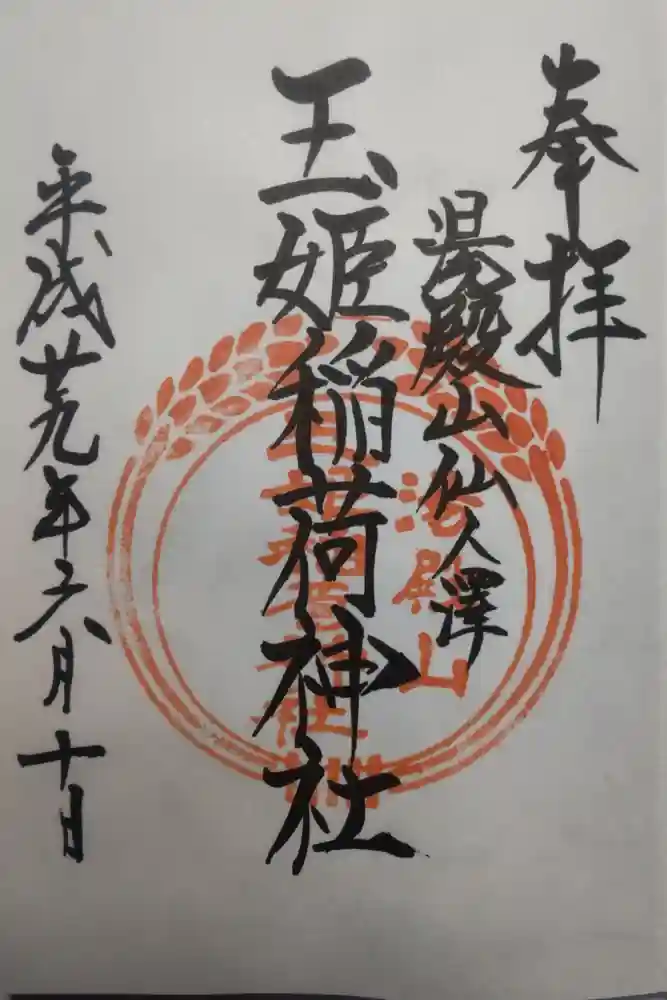 奉拝
湯殿山仙人澤
玉姫稲荷神社
湯殿山
平成廿九年六月十日